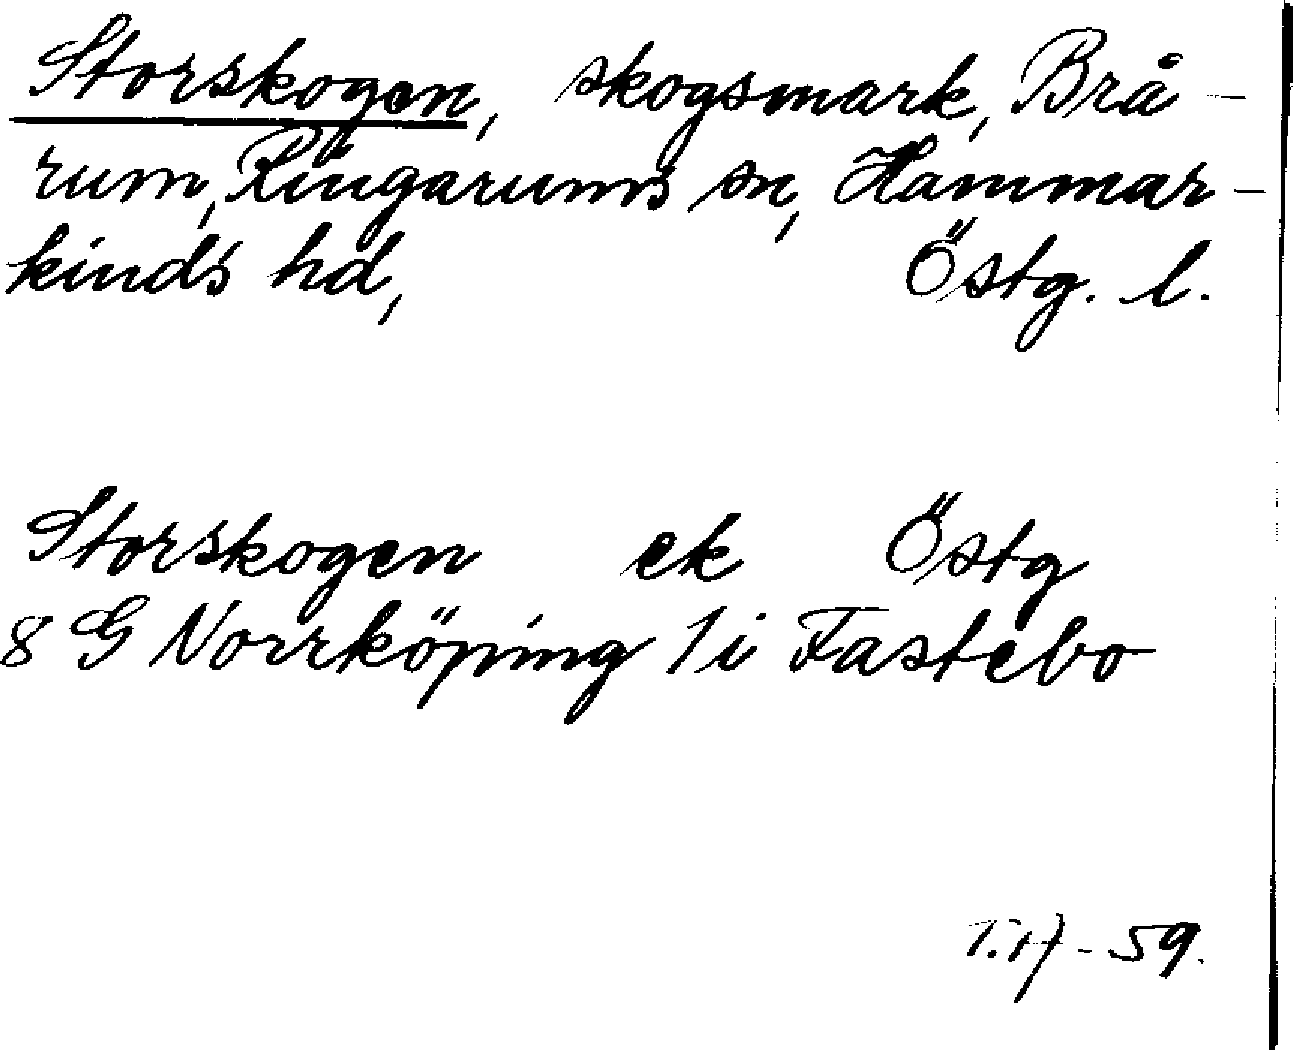 Storskogen, skogsmark, Brå-
rum, Ringarums sn, Hammar-
kinds hd, Östg. l.
Storskogen ek Östg
8 G Norrköping 1 i Fastebo
T.H-59.